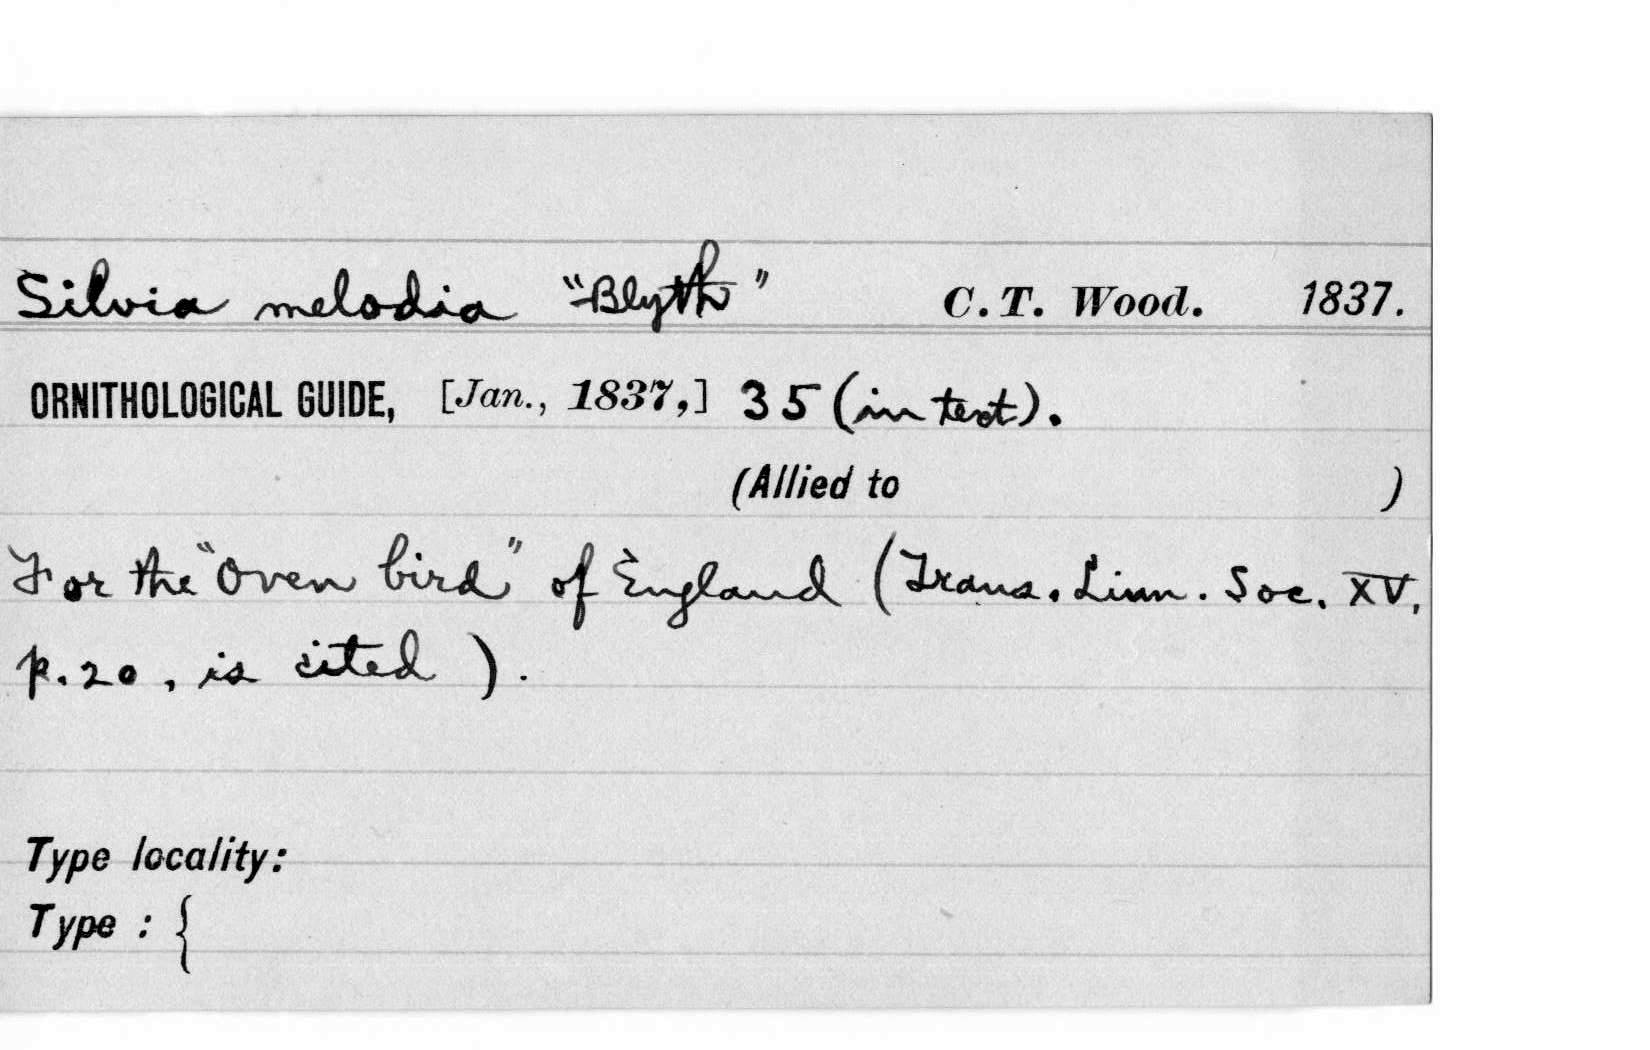 Silvia melodia "Blyth" C.T. Wood. 1837.
ORNITHOLOGICAL GUIDE, [Jan., 1837,] 35 (in text).
(Allied to )
For the "Oven bird" of England (Trans. Linn. Soc. XV,
p. 20, is cited ).
Type locality:
Type : {